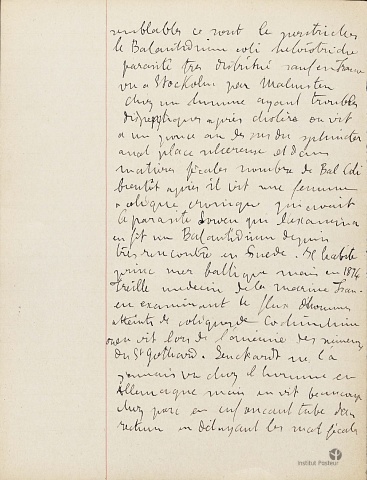 semblables ce sont le
le Balantidium coli hétérotriche
parasite très distribué sauf en France
vu a Stockolm par Malmsten
chez un homme ayant troubles
dyspeptiques après choléra on vit
a un pouce au dessus du sphincter
anal place ulcereuse et dans
matières fécales nombre de Bal Coli
bientôt après il vit une femme
colique chronique qui avait
le parasite Loven qui l'examina
en fit un Balantidium depuis
très rencontré en Suede. Il habite
mer baltique mais en 1874
Treille medecin de la marine Fran
en examinant le flux d'hommes
atteints de coliques de Cochinchine
on en vit lors de l'anemie des mineurs
du St Gothard. Leuckardt ne l'a
jamais vu chez l'homme en
Allemagne mais en vit beaucoup
chez porc en enfoncant tube dans
rectum en délayant les mat fécales
Institut Pasteur